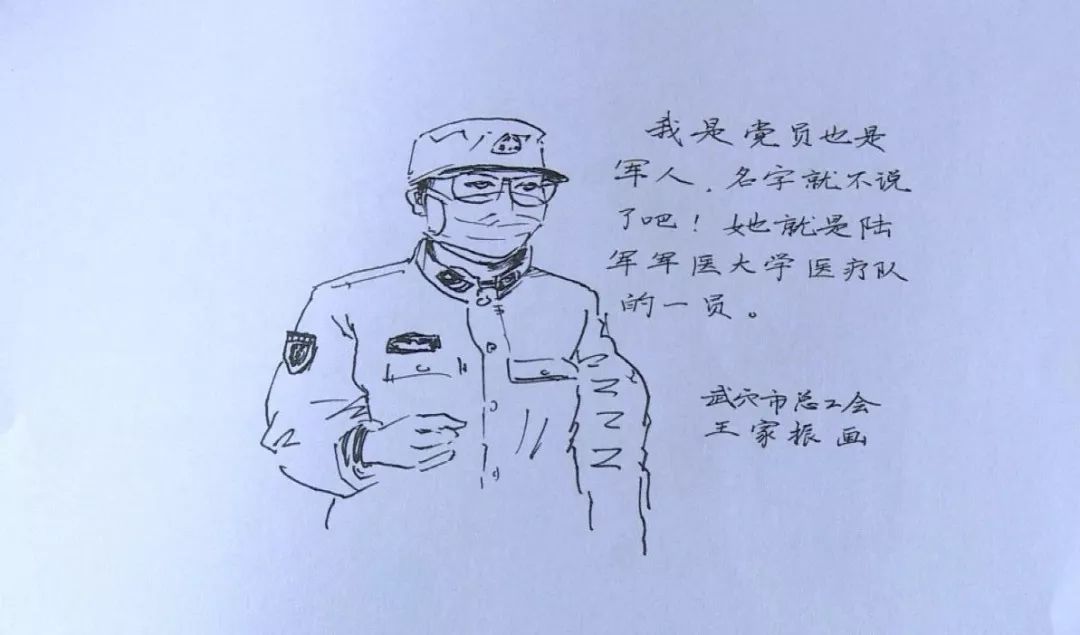 我是党员也是
军人，名字就不说
了吧！她就是陆
军军医大学医疗队
的一员。
武穴市总工会
王家振画